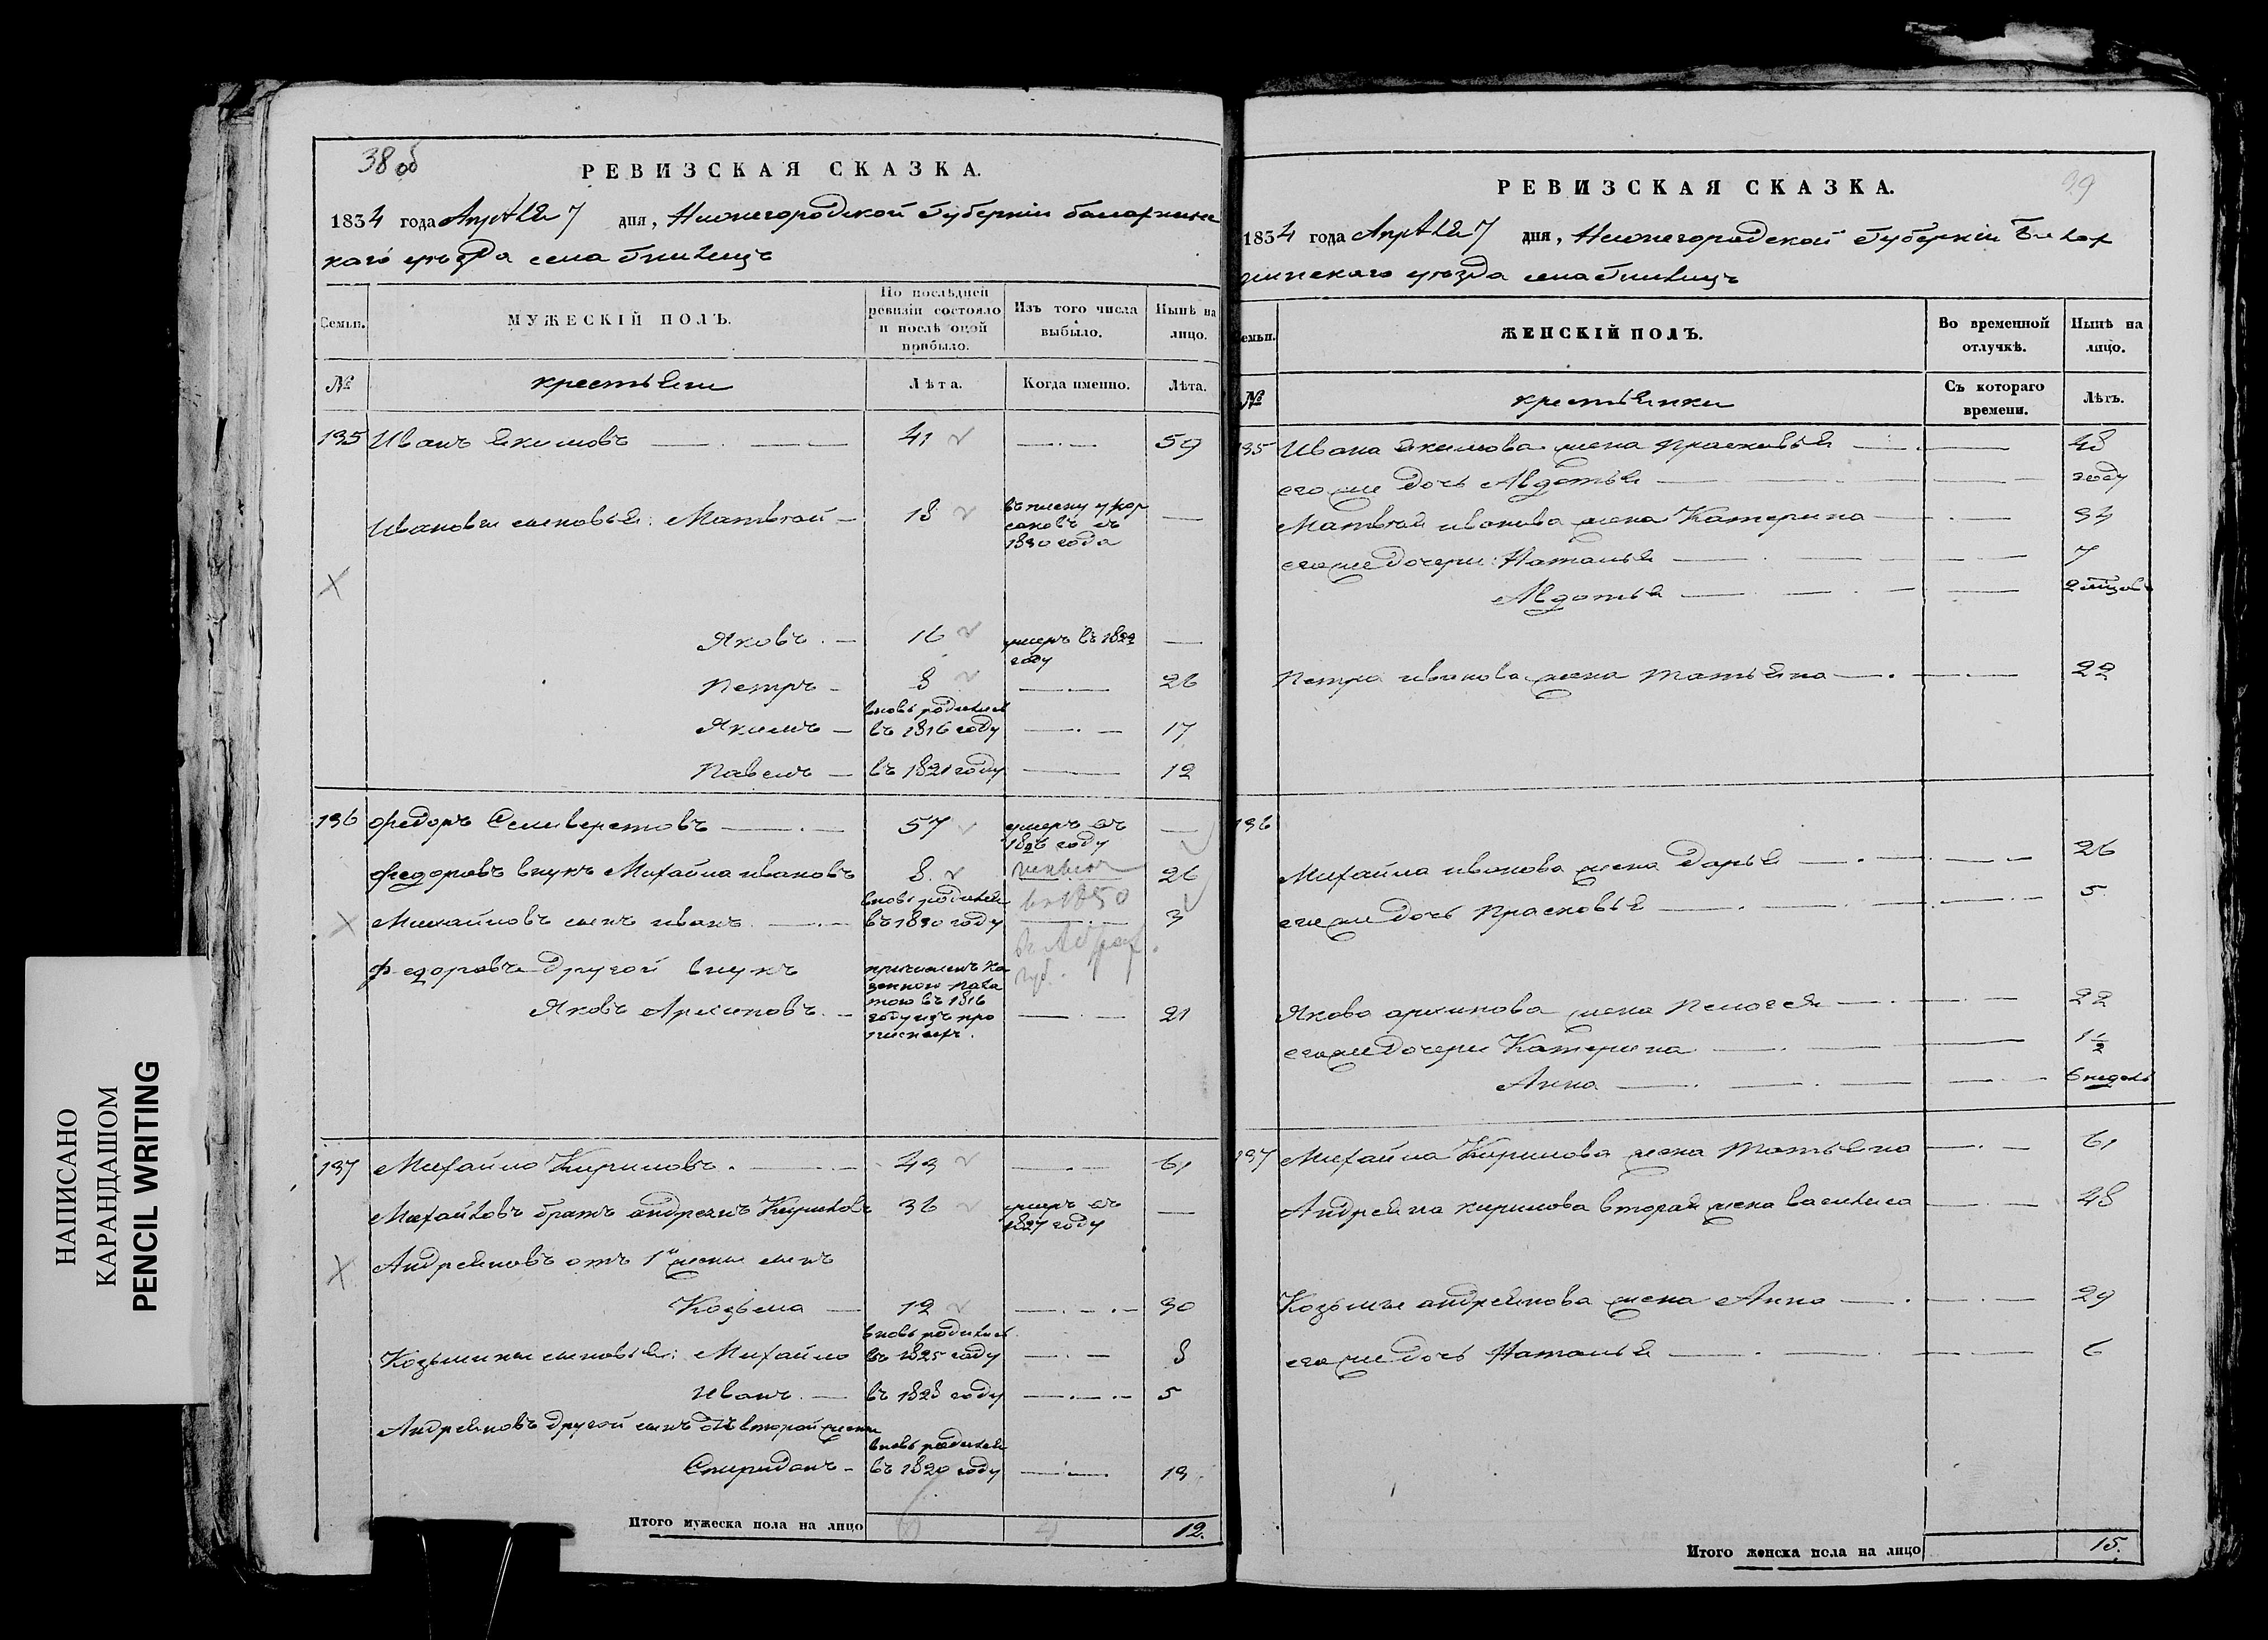 НАПИСАНО
КАРАНДАШОМ
PENCIL WRITING
38 об
РЕВИЗСКАЯ СКАЗКА.
1834 года Апреля 7 дня, Нижегородской Губернии Балахнинс
каго уезда села Гнилицъ
Семьи.
МУЖЕСКІЙ ПОЛЪ.
По послѣдней
ревизіи состояло
и послѣ оной
прибыло.
Изъ того числа
выбыло.
Нынѣ на
лицо.
№
крестьяни
Лѣта.
Когда именно.
Лѣта.
135 Иванъ Якимовъ 41 59
Ивановы сыновья: Матвей 18
1830 года
Яковъ 16 умеръ въ 1822
году
Петръ 8 26
вновь родились
Якимъ въ 1816 году 17
Павелъ въ 1821 году 12
136 Федоръ Селиверстовъ 57 умеръ въ
1826 году
Федоровъ внукъ Михайла Ивановъ 8 26
вновь родился
Михайловъ сынъ Иванъ въ 1830 году 3
Федоровъ другой внукъ
причисленъ ка
зенною пала
тою въ 1816
Яковъ Архиповъ году изъ про 21
писныхъ.
137 Михайло Кириловъ 43 61
Михайловъ братъ Андреянъ Кириловъ 36 умеръ въ
1827 году
Андреяновъ отъ 1й жены сынъ
Козьма 12 30
вновь родились
Козьмины сыновья: Михайло въ 1825 году 8
Иванъ въ 1828 году 5
Андреяновъ другой сынъ отъ второй жены
вновь родился
Спиридонъ въ 1820 году 13
Итого мужеска пола на лицо 12.
39
РЕВИЗСКАЯ СКАЗКА.
1834 года Апреля 7 дня, Нижегородской Губернии Балах
нинскаго уезда села Гнилицъ
Семьи.
ЖЕНСКІЙ ПОЛЪ.
Во временной
отлучкѣ.
Нынѣ на
лицо.
№
крестьянки
Съ котораго
времени.
Лѣтъ.
135 Ивана Якимова жена Прасковья 48
его же дочь Авдотья году
Матвея Иванова жена Катерина 34
его же дочери: Наталья 7
Авдотья 2 мѣсяцовъ
Петра Иванова жена Татьяна 22
136
Михайла Иванова жена Дарья 26
его же дочь Прасковья 5
Якова Архипова жена Пелагея 22
его же дочери Катерина 1 1/2
Анна 6 недель
137 Михайла Кирилова жена Татьяна 61
Андреяна Кирилова вторая жена Василиса 48
Козьмы Андреянова жена Анна 29
его же дочь Наталья 6
Итого женска пола на лицо 15.